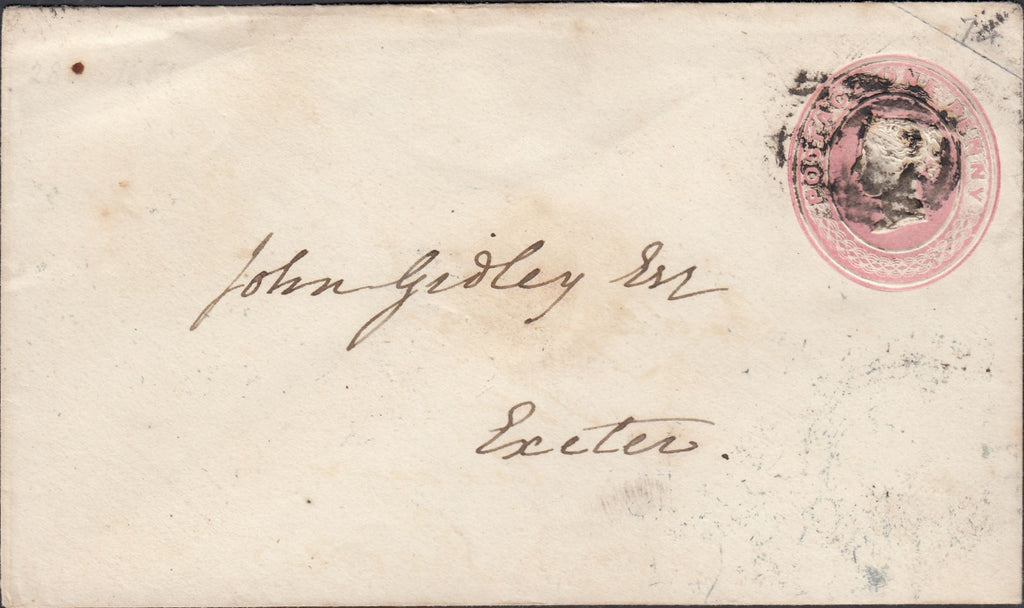 POSTAGE ONE PENNY
John Gidley Esq
Exeter.